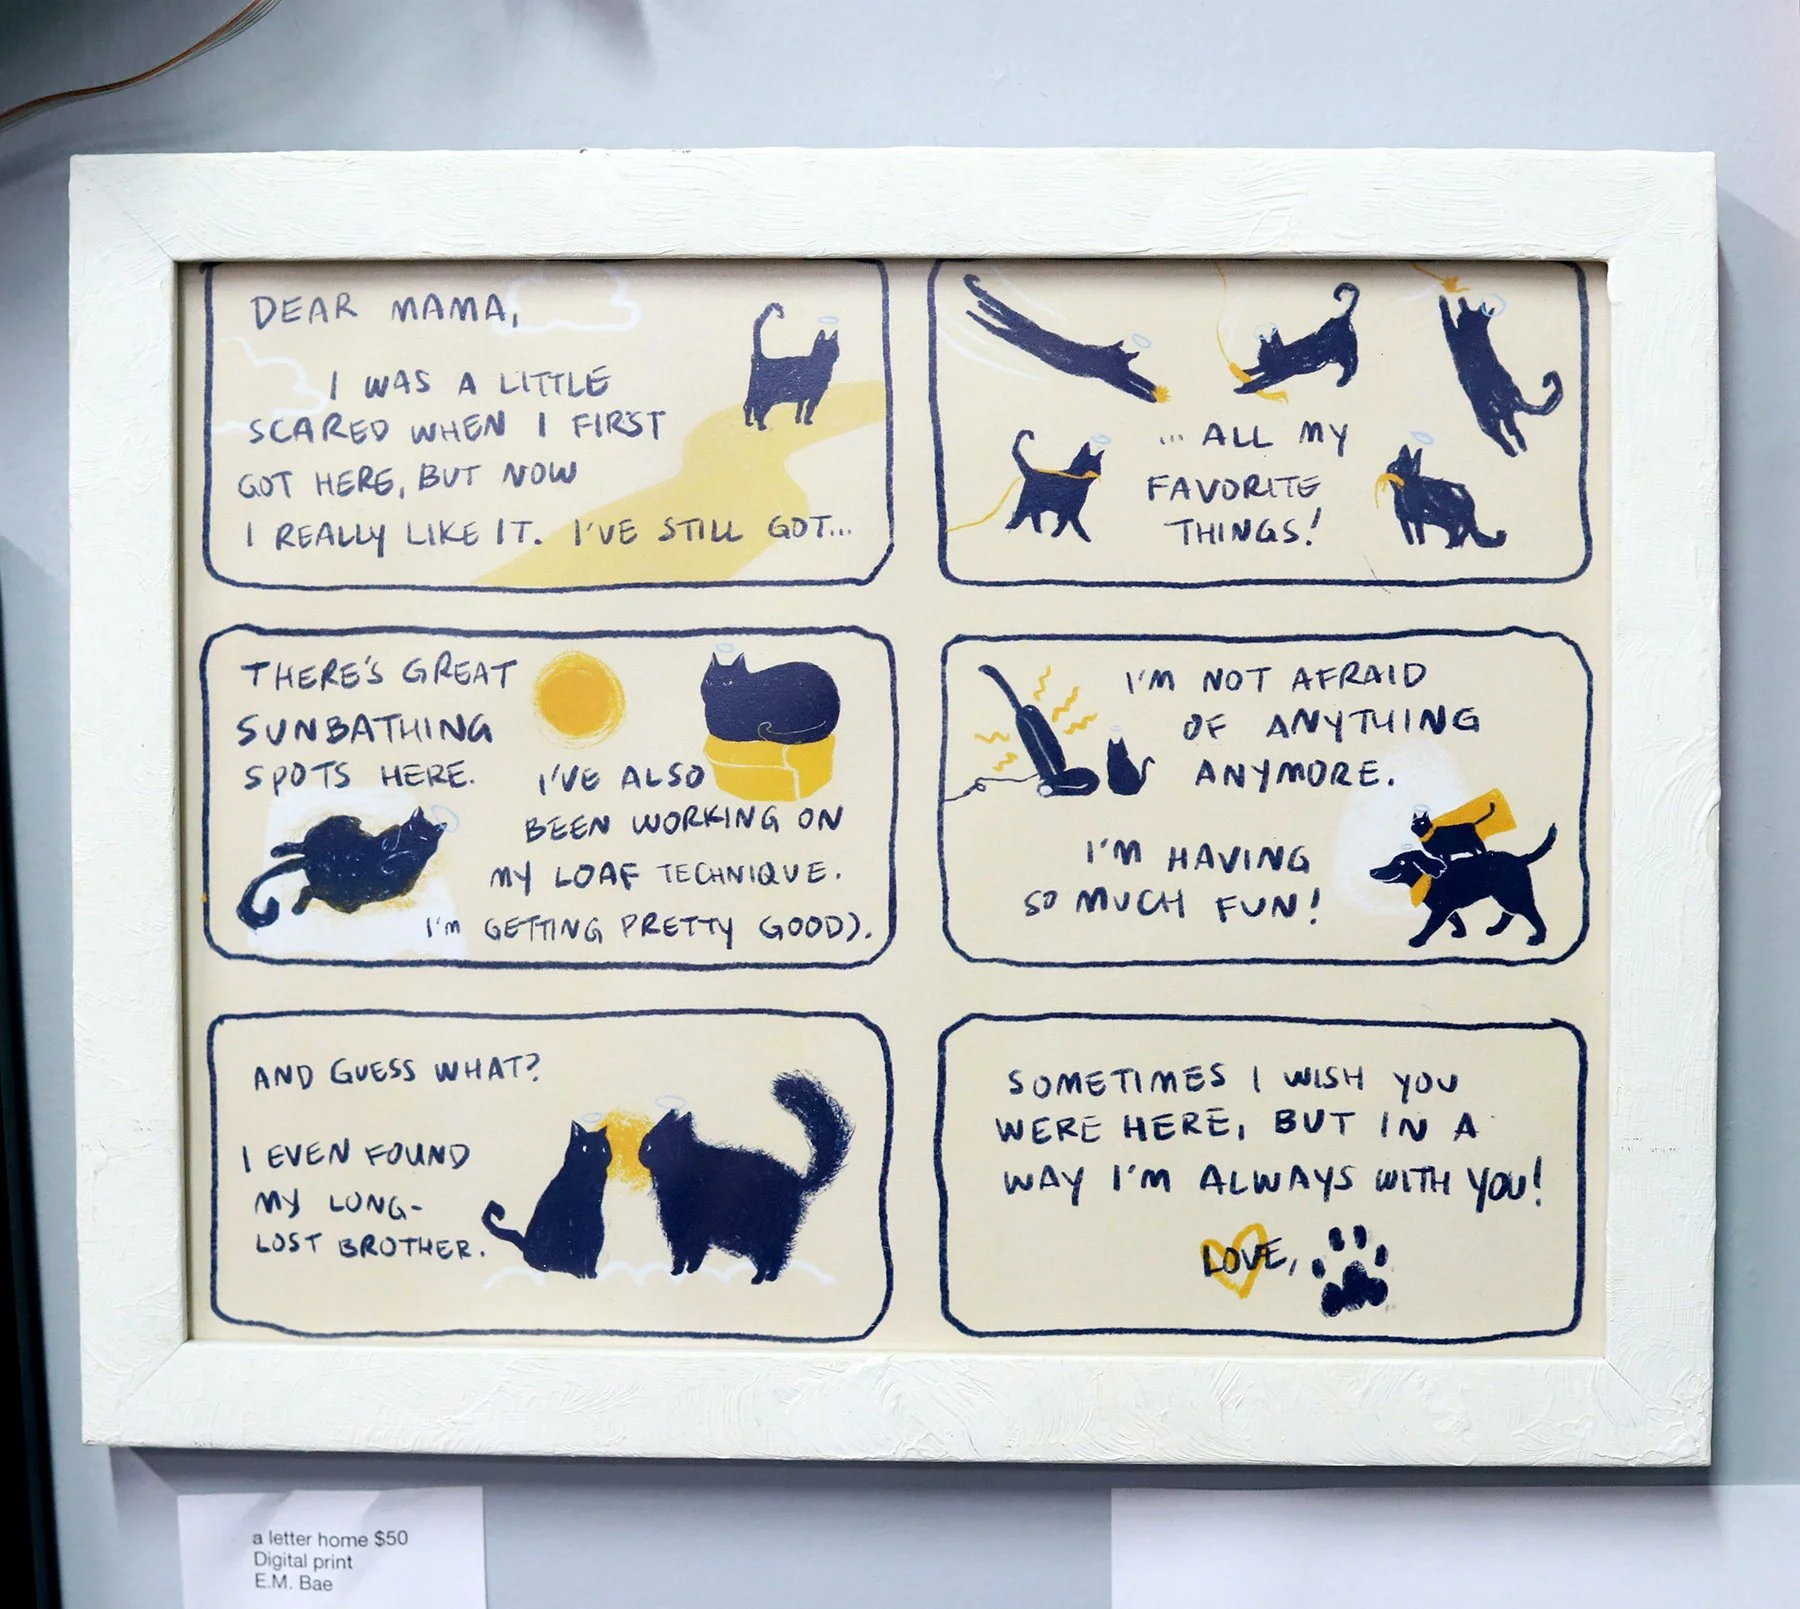 DEAR MAMA,
I WAS A LITTLE
SCARED WHEN I FIRST
GOT HERE, BUT NOW
I REALLY LIKE IT. I'VE STILL GOT...
... ALL MY
FAVORITE
THINGS!
THERE'S GREAT
SUNBATHING
SPOTS HERE.
I'VE ALSO
BEEN WORKING ON
MY LOAF TECHNIQUE.
I'M GETTING PRETTY GOOD).
I'M NOT AFRAID
OF ANYTHING
ANYMORE.
I'M HAVING
SO MUCH FUN!
AND GUESS WHAT?
I EVEN FOUND
MY LONG-
LOST BROTHER.
SOMETIMES I WISH YOU
WERE HERE, BUT IN A
WAY I'M ALWAYS WITH YOU!
LOVE,
a letter home $50
Digital print
E.M. Bae